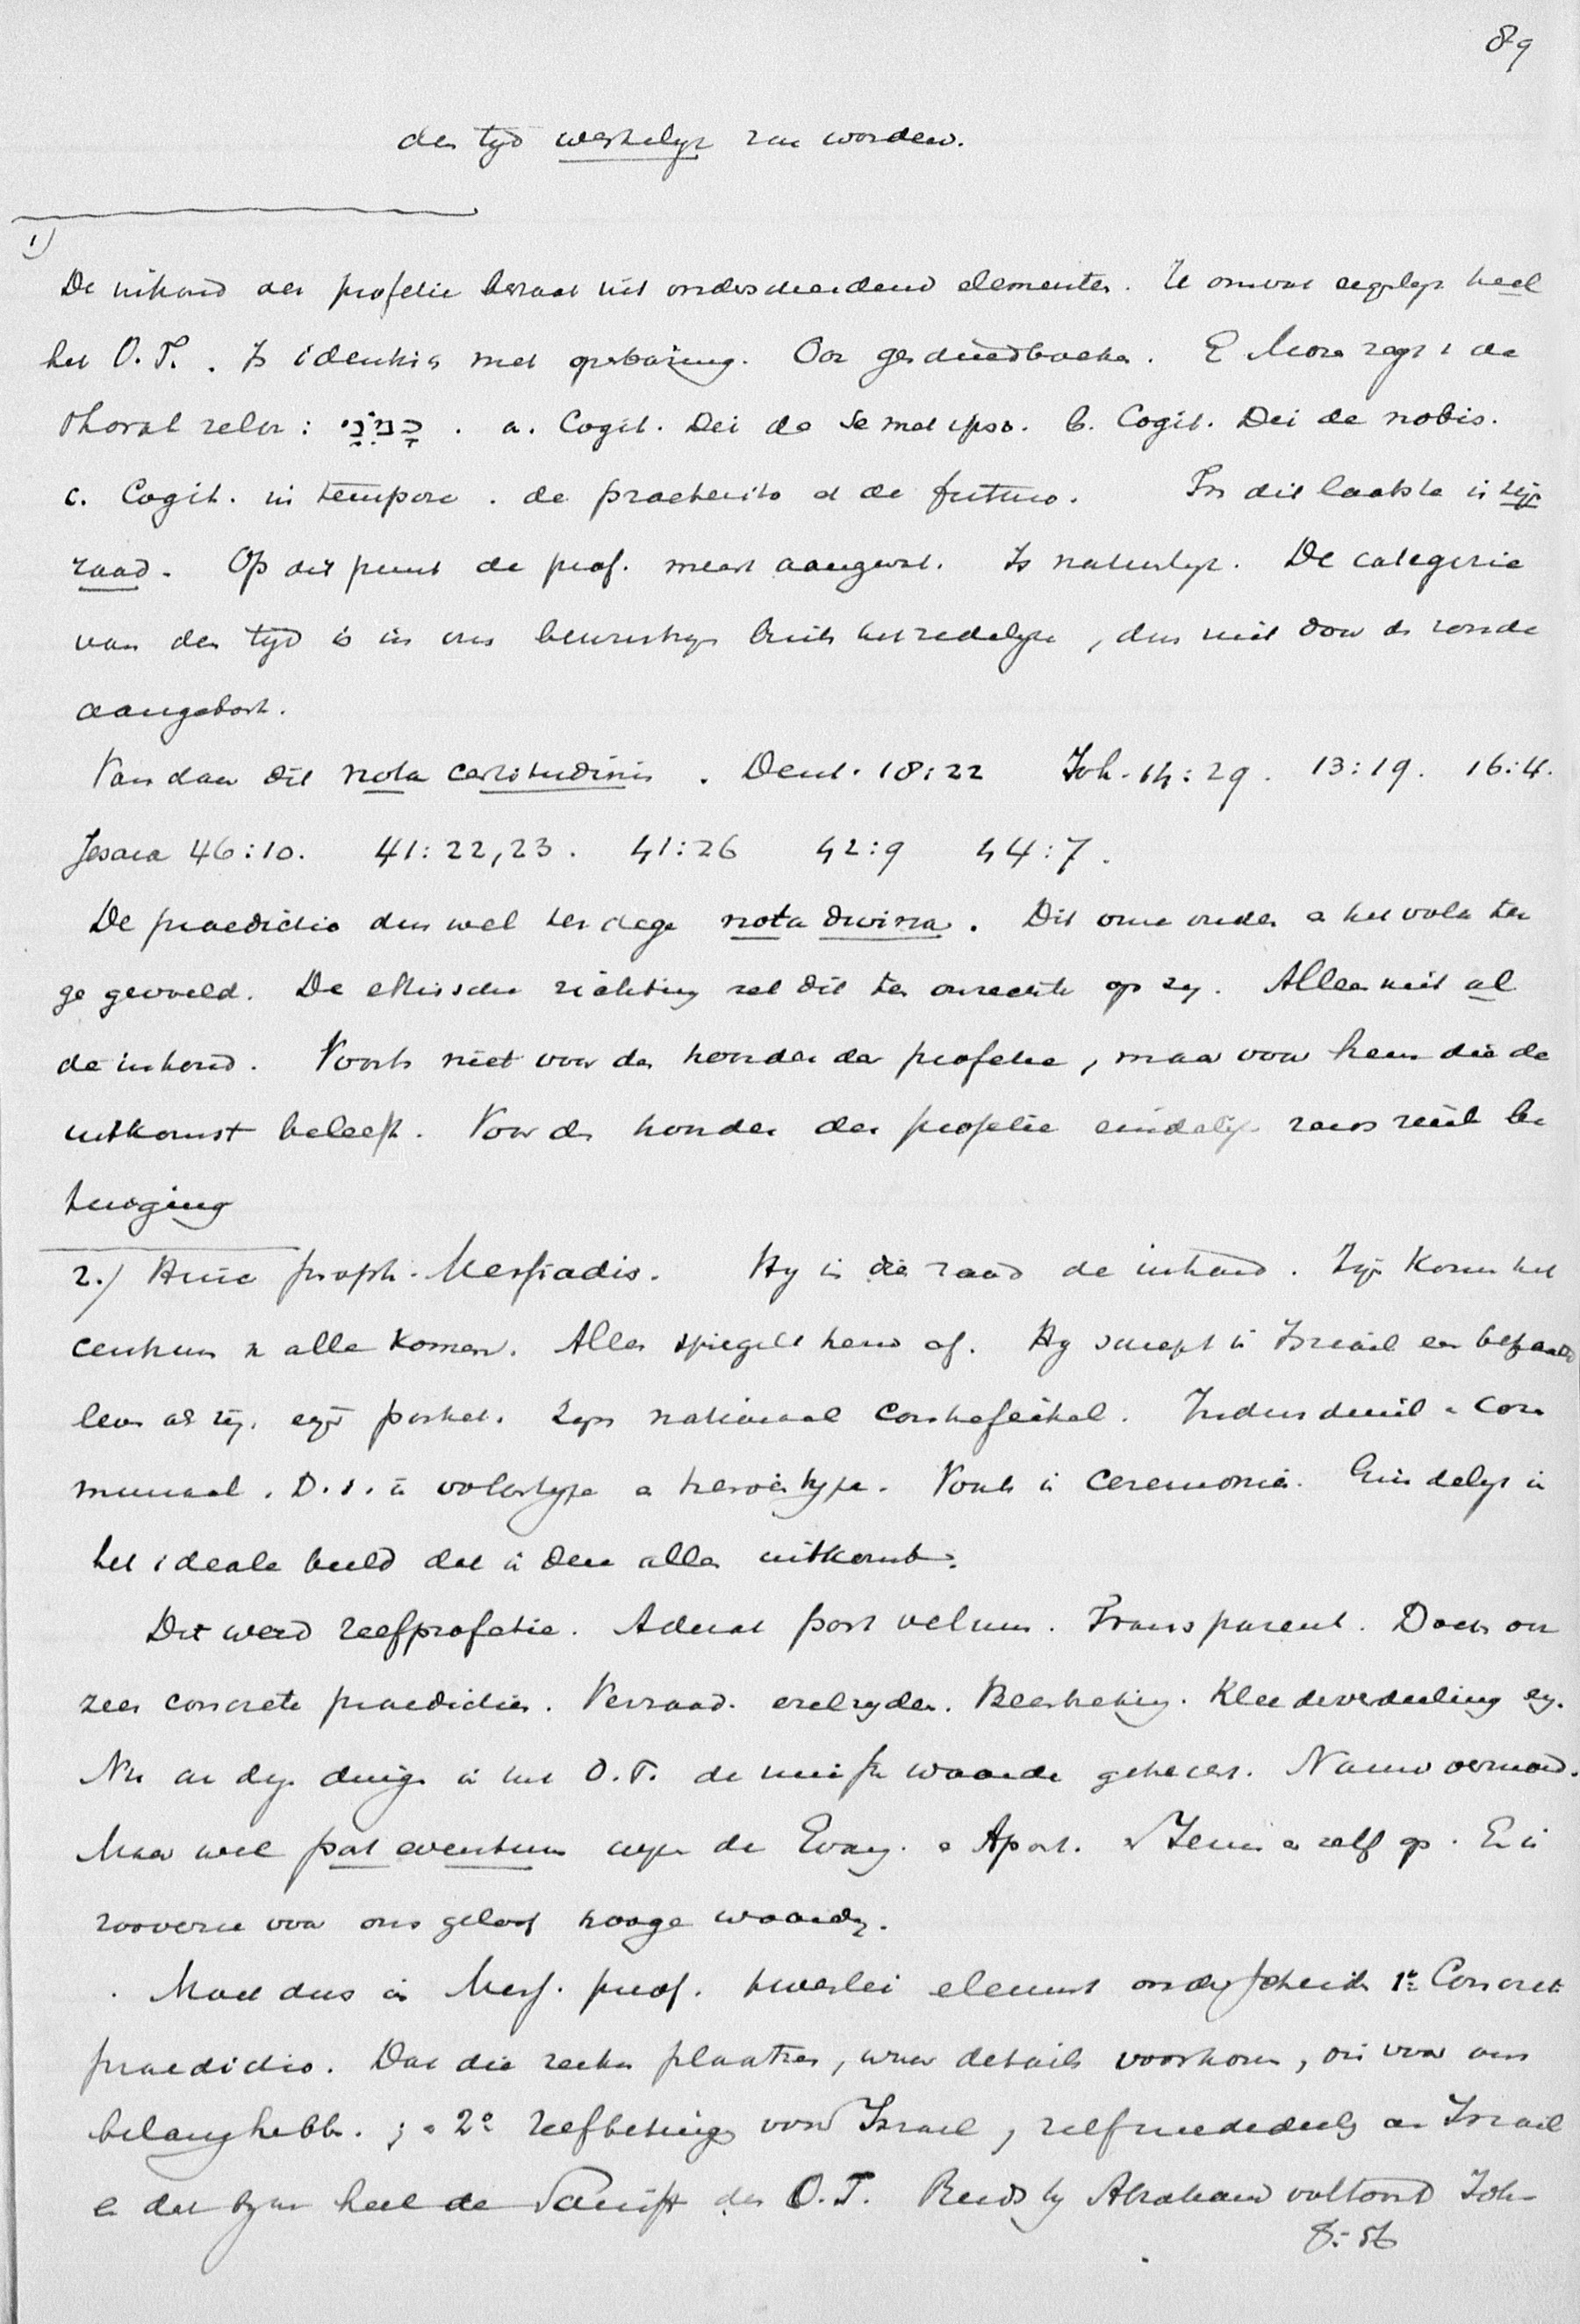 89
den tyd werkelyk zou worden.
1)
De inhoud der profetie bestaat uit onderscheidene elementen. Ze omvat eigelyk heel
het O. T. . Is identiek met openbaring. Ook geschiedboeken. E Mozes zegt i de
thorah zelve : כָּמֹנִי . a. Cogit. Dei de Se met ipso. b. Cogit. Dei de nobis.
c. Cogit. in tempore . de praeterito et de futuro. In dit laatste is zijn
raad. Op dit punt de prof. meest aangevat. Is natuurlyk. De categorie
van den tyd is in ons bewustzyn buiten het zedelyke , dus niet door de zonde
aangetast.
Van daar dit nota certitudinis . Deut. 18:22 Joh. 14:29. 13:19. 16:4.
Jesaia 46:10. 41:22,23. 41:26 42:9 44:7.
De praedictio dus wel ter dege nota divina. Dit onder a het volk ten
ge gevoeld. De ethische richting zet dit ten onrechte op zy. Alleen niet al
de inhoud. Voorts niet voor den hoorder der profetie, maar voor hem die de
uitkomst beleeft. Voor den hoorder der profetie eindelyk
tuiging
2.) proph. Messiadis. Hy is die raad de inhoud. Zijn Komen het
centrum v alle komen. Alles spiegelt hem af. Hy schept in Israël een bepaald
leven als zijn eigen portret. Zijn nationaal conterfeitsel. Individueel a com
munaal. D. i. in volkstype a heroëntype. Voorts in Ceremonien. Eindelyk in
het ideale beeld dat in deze alle uitkomt.
Dit werd zelfprofetie. Aderat post velum. Transparent. Doch ook
zeer concrete praedictien. Verraad. ezelryden. Kleederverdeeling enz.
Nu aan deze dingen in het O. T. de minste waarde gehecht. Nauw vermoed.
Maar wel post eventum wyzen de Evang. a Apost. a Jezus er zelf op. En is
zooverre voor ons geloof hooge waarde.
Moet dus in Mess. prof. tweeërlei element onderscheiden 1e Concrete
praedictio. Dat die zeekre plaatsen, waar details voorkomen, die voor ons
belang hebben. ; a 2e Israel, zelfmededeeling aan Israel
en dat heel de Schrift des O. T. Reeds by Abraham voltooid Joh
8:56